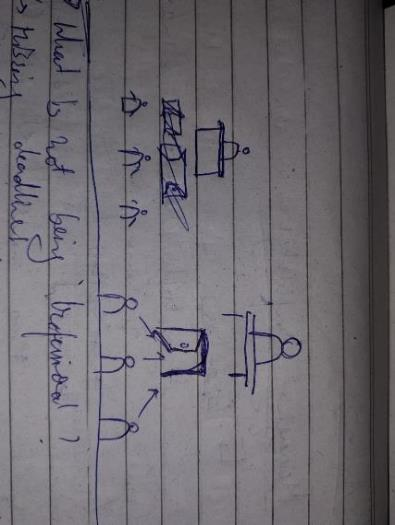 What is not being Profesional?
→ Missing deadlines